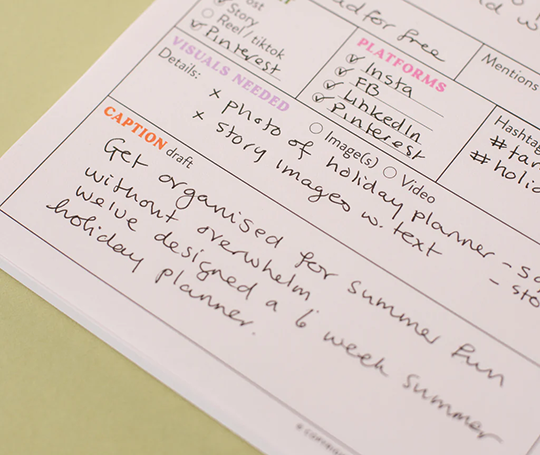 Post
Story
Reel / tiktok
Pinterest
for free
PLATFORMS
Insta
FB
LinkedIn
Pinterest
Mentions
Hashtag
#
#holi
VISUALS NEEDED
Details:
Image(s)
Video
x photo of holiday planner -
x story images w. text -
CAPTION draft
Get organised for summer fun
without overwhelm
We've designed a 6 week summer
holiday planner.